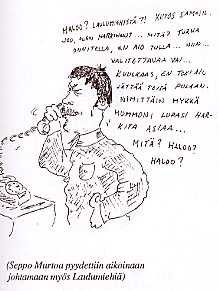 HALOO? LAULUMIEHISTÄ?! KIITOS SAMOIN.
JOO, OLEN HARKINNUT... MITÄ? TURHA
ONNITELLA, EN AIO TULLA... NIIN...
VALITETTAVAA VAI...
KUULKAAS, EN TOKI AIO
JÄTTÄÄ TEITÄ PULAAN.
NIMITTÄIN MYKKÄ
MUMMONI LUPASI HAR-
KITA ASIAA...
MITÄ? HALOO?
HALOO?
(Seppo Murtoa pyydettiin aikoinaan
johtamaan myös Laulumiehiä)